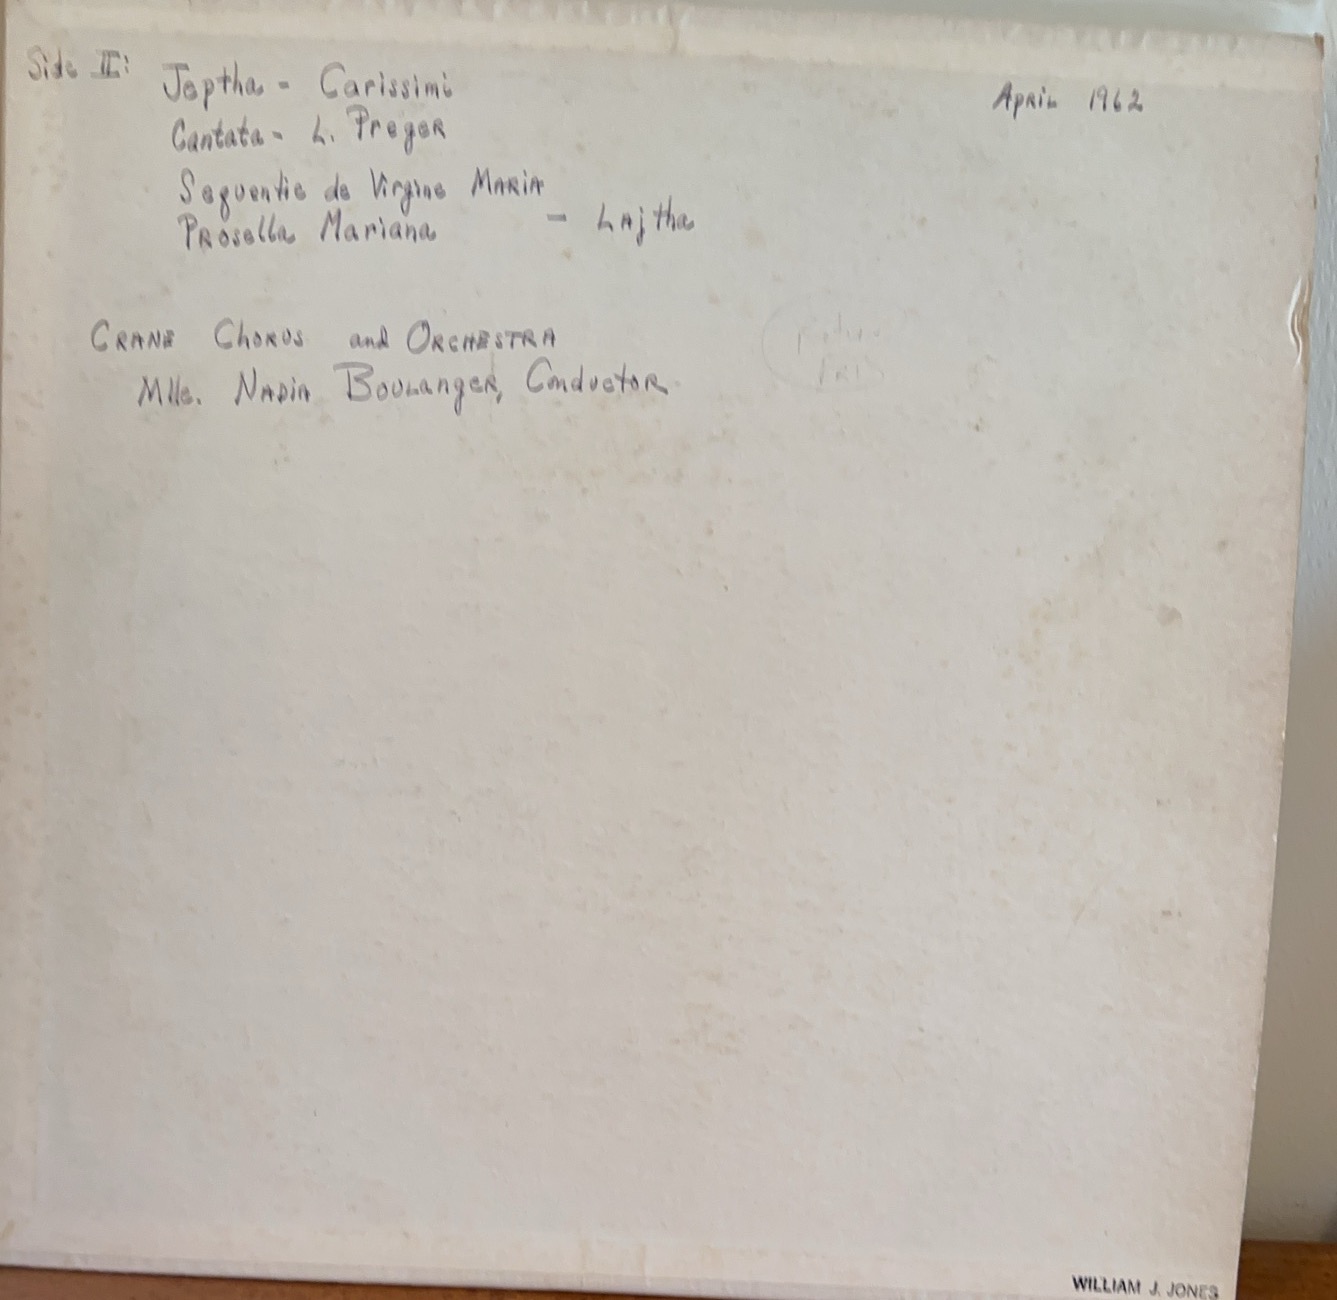 Side II:
Jeptha - Carissimi
April 1962
Cantata - L. Preger
Sequentie de Virgine Maria
Prosella Mariana - Lajtha
Crane Chorus and Orchestra
Mlle. Nadia Boulanger, Conductor
WILLIAM J. JONES